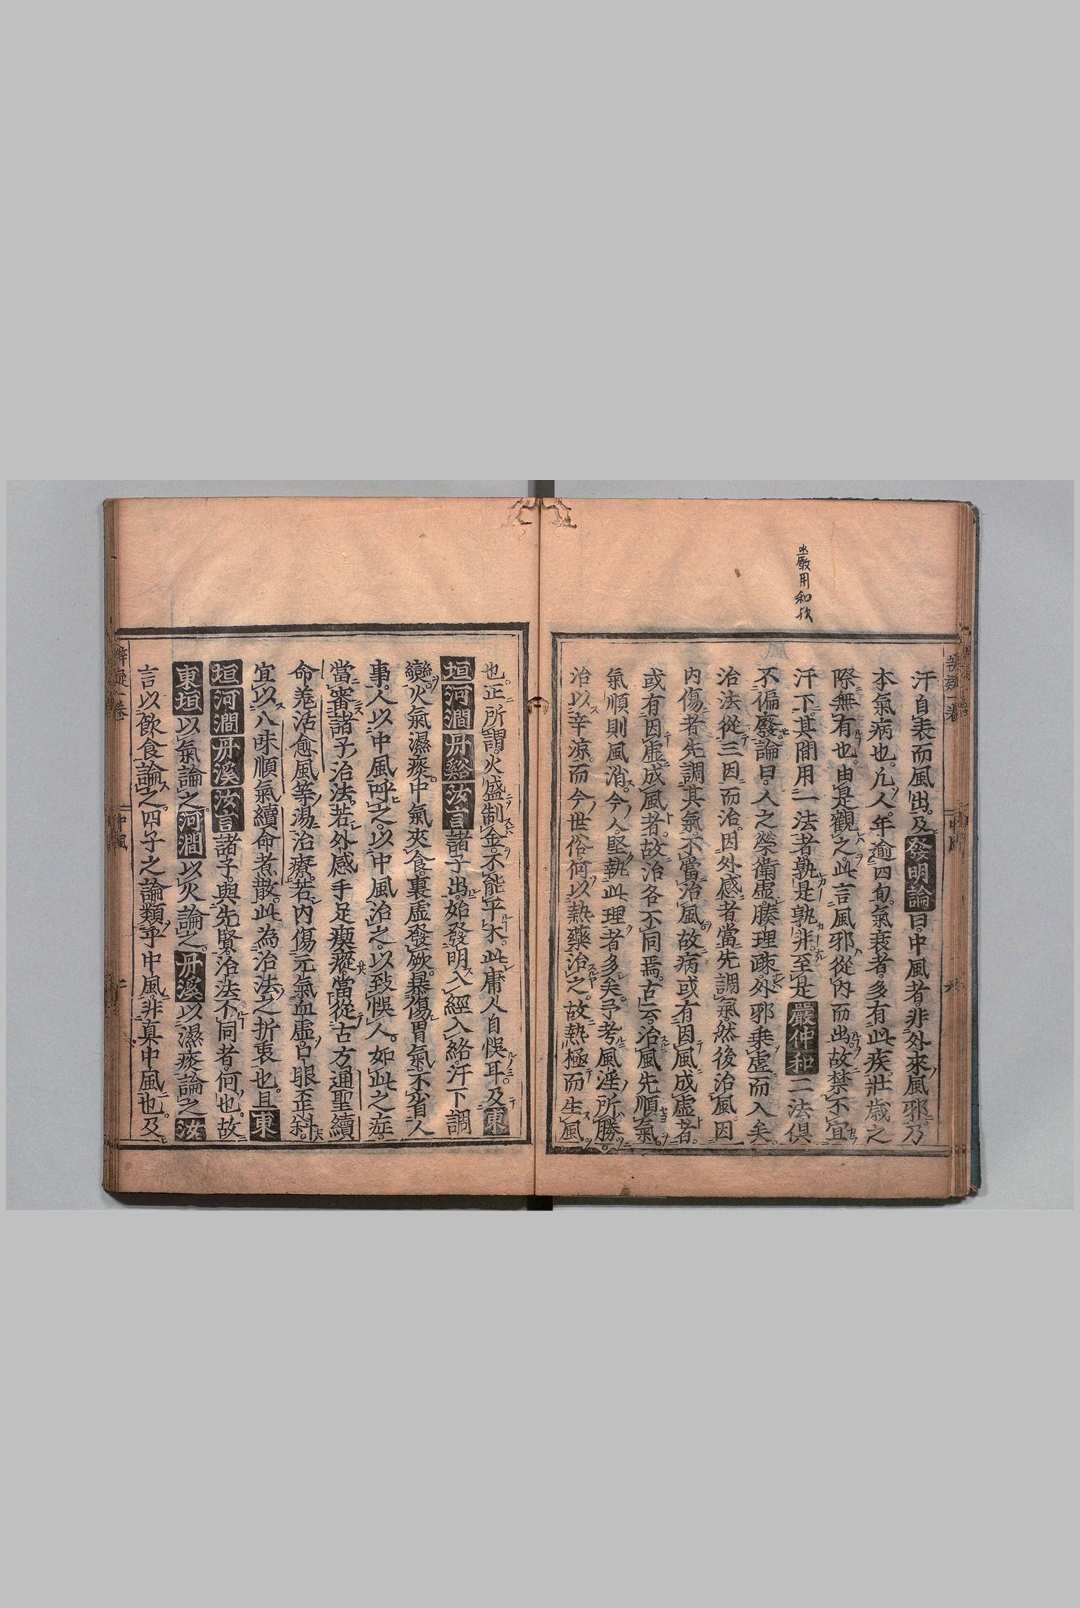 嚴用和
汗自表而風出及發明論曰中風者非外來風邪乃
本氣病也凡人年逾四旬氣衰者多有此疾壯歲之
際無有也由是觀之此言風邪從內而出故禁不宜
汗下其間用一法者孰是孰非至是嚴仲和二法俱
不偏廢論曰人之榮衛虛腠理疎外邪乗虛而入矣
治法從三因而治因外感者當先調氣然後治風因
內傷者先調其氣不當治風故病或有因風成虛者
或有因虛成風者故治各不同焉古云治風先順氣
氣順則風消今人堅執此理者多矣予考風淫所勝
治以辛凉而今世俗何以熱藥治之故熱極而生風
也正所謂火盛制金不能平木此庸人自悞耳及東
垣河澗丹谿汝言諸子出始發明入經入絡汗下調
變火氣濕痰中氣夾食裏虛發厥暴傷胃氣不省人
事人以中風呼之以中風治之以致悞人如此之症
當審諸子治法若外感手足瘓瘲當從古方通聖續
命羗活愈風等湯治療若內傷元氣血虛口眼歪斜
宜以八味順氣續命煮散此為治法之折衷也且東
垣河澗丹溪汝言諸子與先賢治法不同者何也故
東垣以氣論之河澗以火論之丹溪以濕痰論之汝
言以飲食論之四子之論類乎中風非真中風也及
一卷
中風